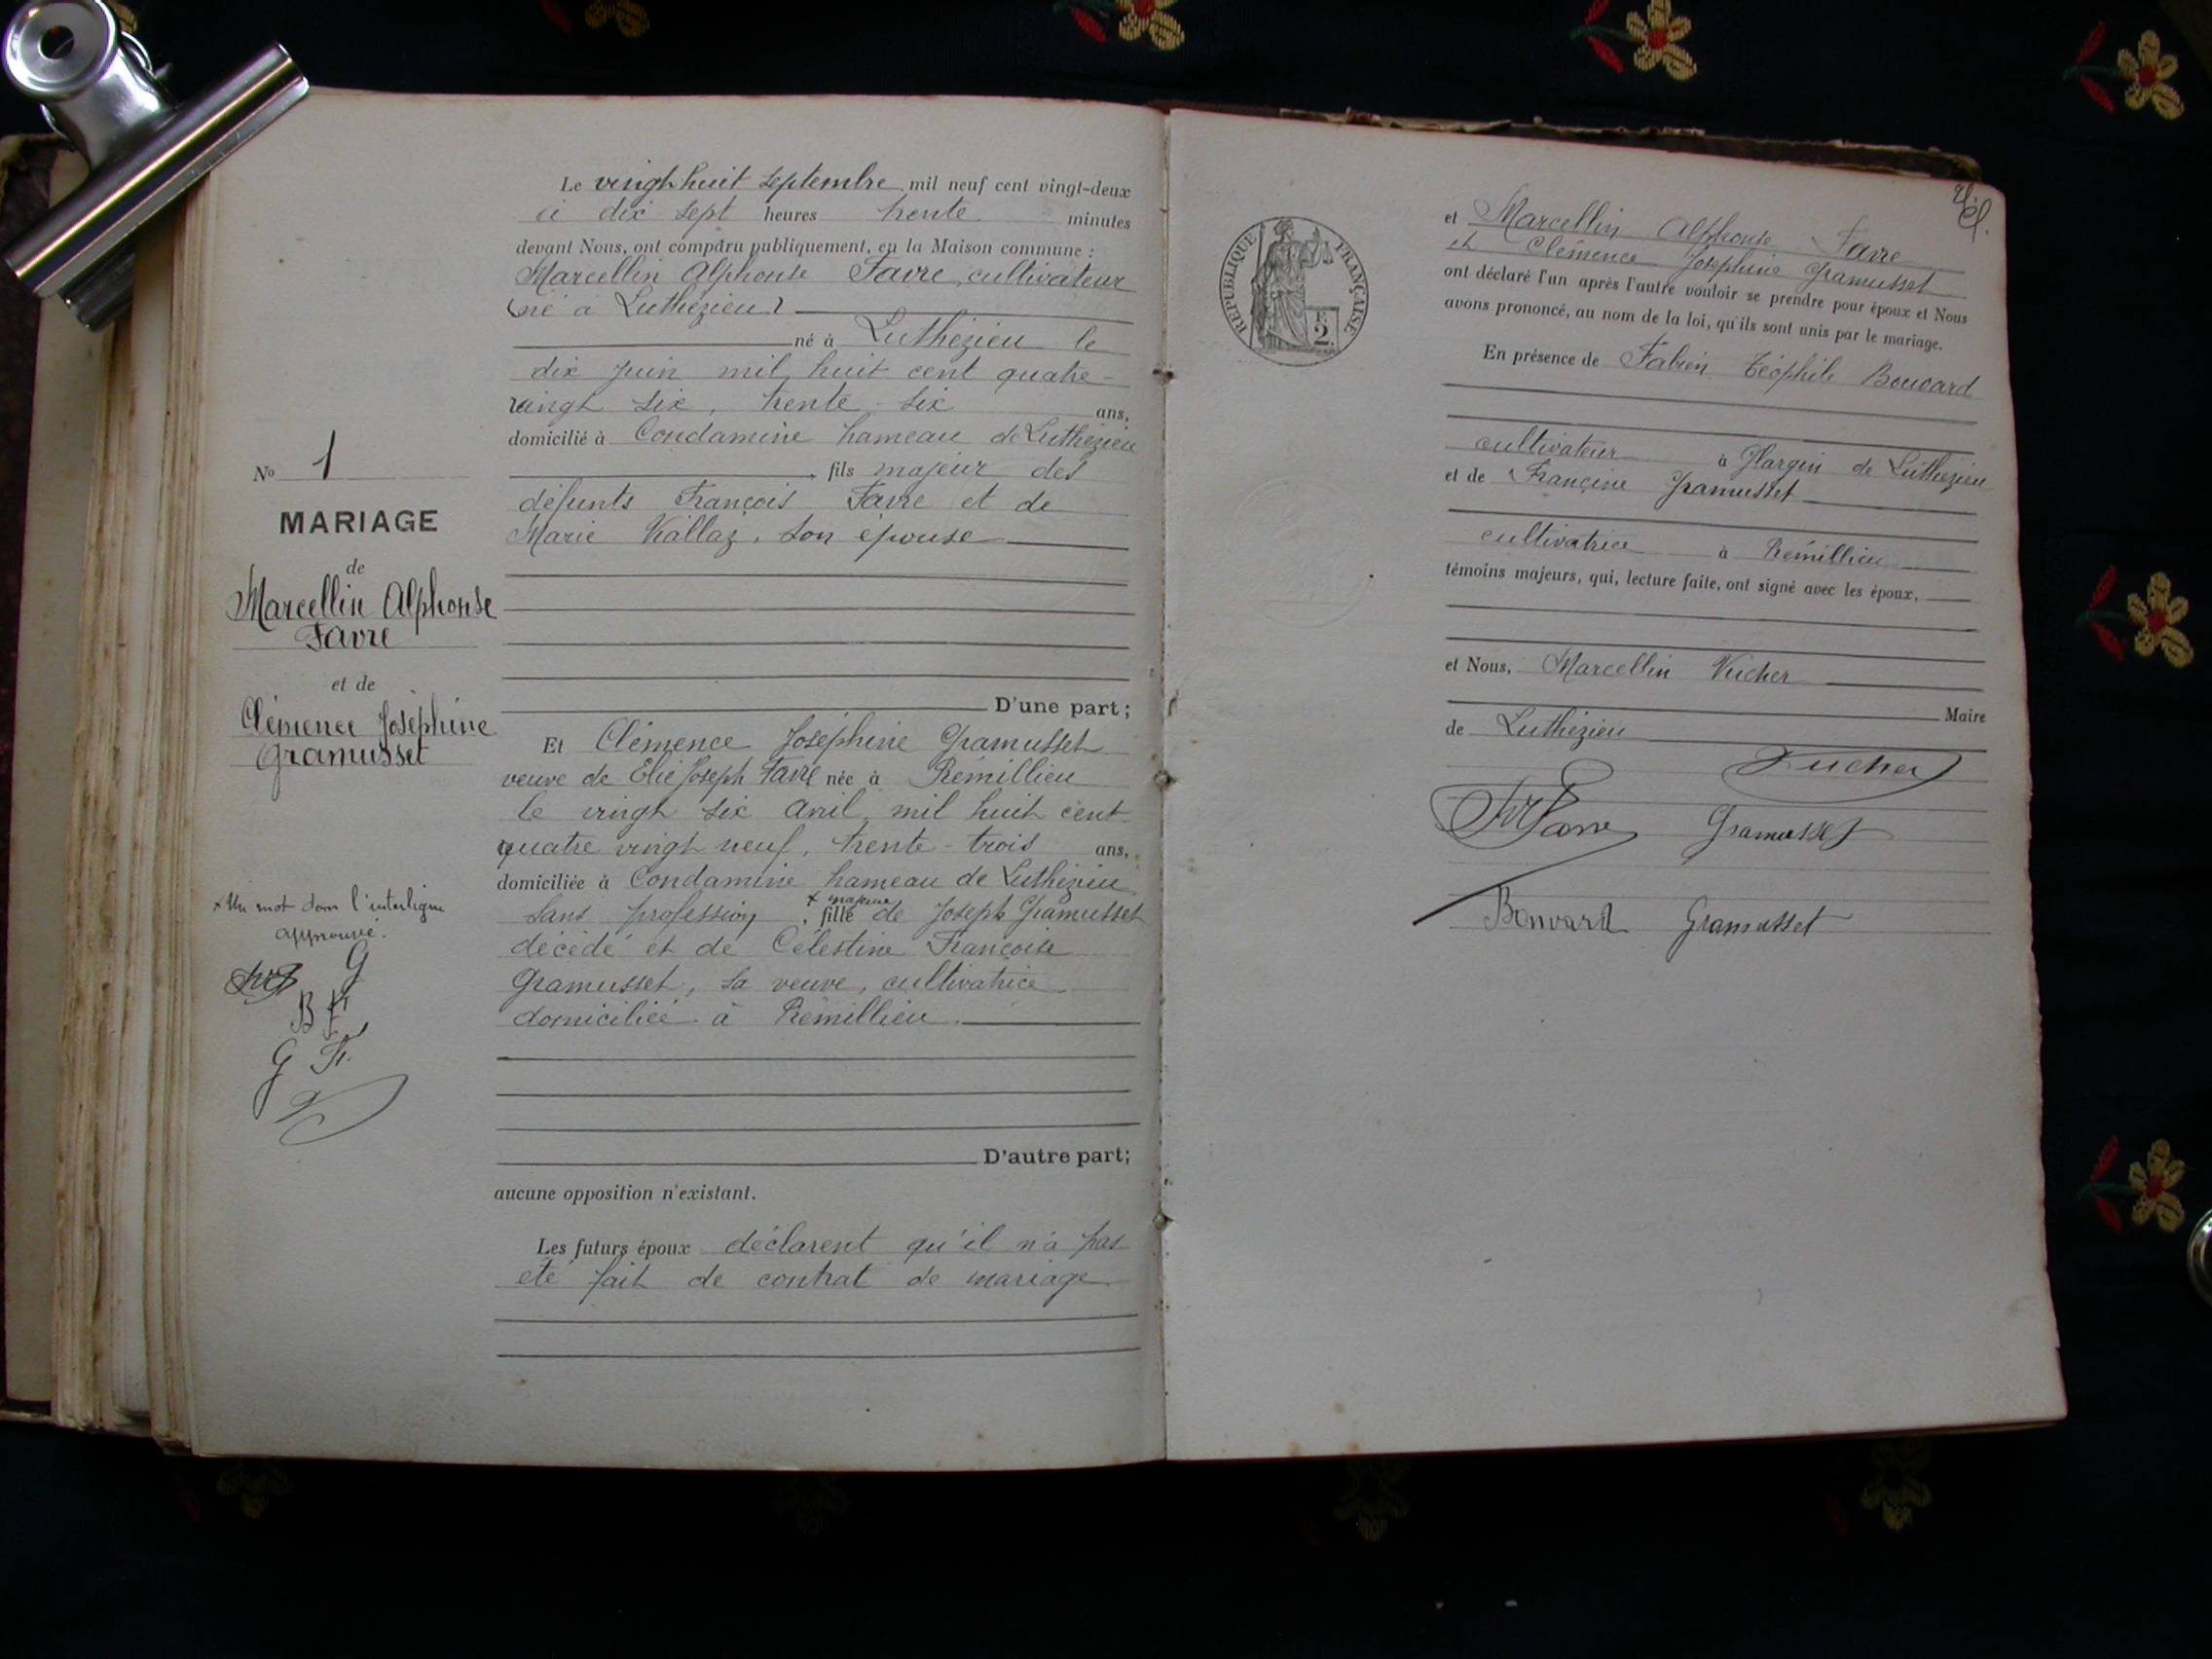 Le vingt huit septembre mil neuf cent vingt-deux
à dix sept heures trente minutes
devant Nous, ont comparu publiquement, en la Maison commune :
Marcellin Alphonse Favre, cultivateur
(né à Luthézieu)
né à Luthézieu le
dix juin mil huit cent quatre-
vingt six, trente-six ans,
domicilié à Condamine hameau de Luthézieu
fils majeur des
défunts François Favre et de
Marie Vallaz, son épouse
D'une part;
Et Clémence Joséphine Gramusset
veuve de Elie Joseph Favre née à Rémillieu
le vingt six avril mil huit cent
quatre vingt neuf, trente-trois ans,
domiciliée à Condamine hameau de Luthézieu
x majeure
sans profession, fille de Joseph Gramusset
décédé et de Célestine Françoise
Gramusset, sa veuve, cultivatrice
domiciliée à Rémillieu.
D'autre part;
aucune opposition n'existant.
Les futurs époux déclarent qu'il n'a pas
été fait de contrat de mariage
No 1
MARIAGE
de
Marcellin Alphonse
Favre
et de
Clémence Joséphine
Gramusset
x Un mot dans l'interligne
approuvé.
G
B F
G F.
RÉPUBLIQUE FRANÇAISE
F.
2.
et Marcellin Alphonse Favre
et Clémence Joséphine Gramusset
ont déclaré l'un après l'autre vouloir se prendre pour époux et Nous
avons prononcé, au nom de la loi, qu'ils sont unis par le mariage.
En présence de Fabien Téophile Bouvard
cultivateur à Glargin de Luthézieu
et de Francine Gramusset
cultivatrice à Rémillieu
témoins majeurs, qui, lecture faite, ont signé avec les époux,
et Nous, Marcellin Vucher
Maire
de Luthézieu
Vucher
Favre Gramusset
Bouvard Gramusset